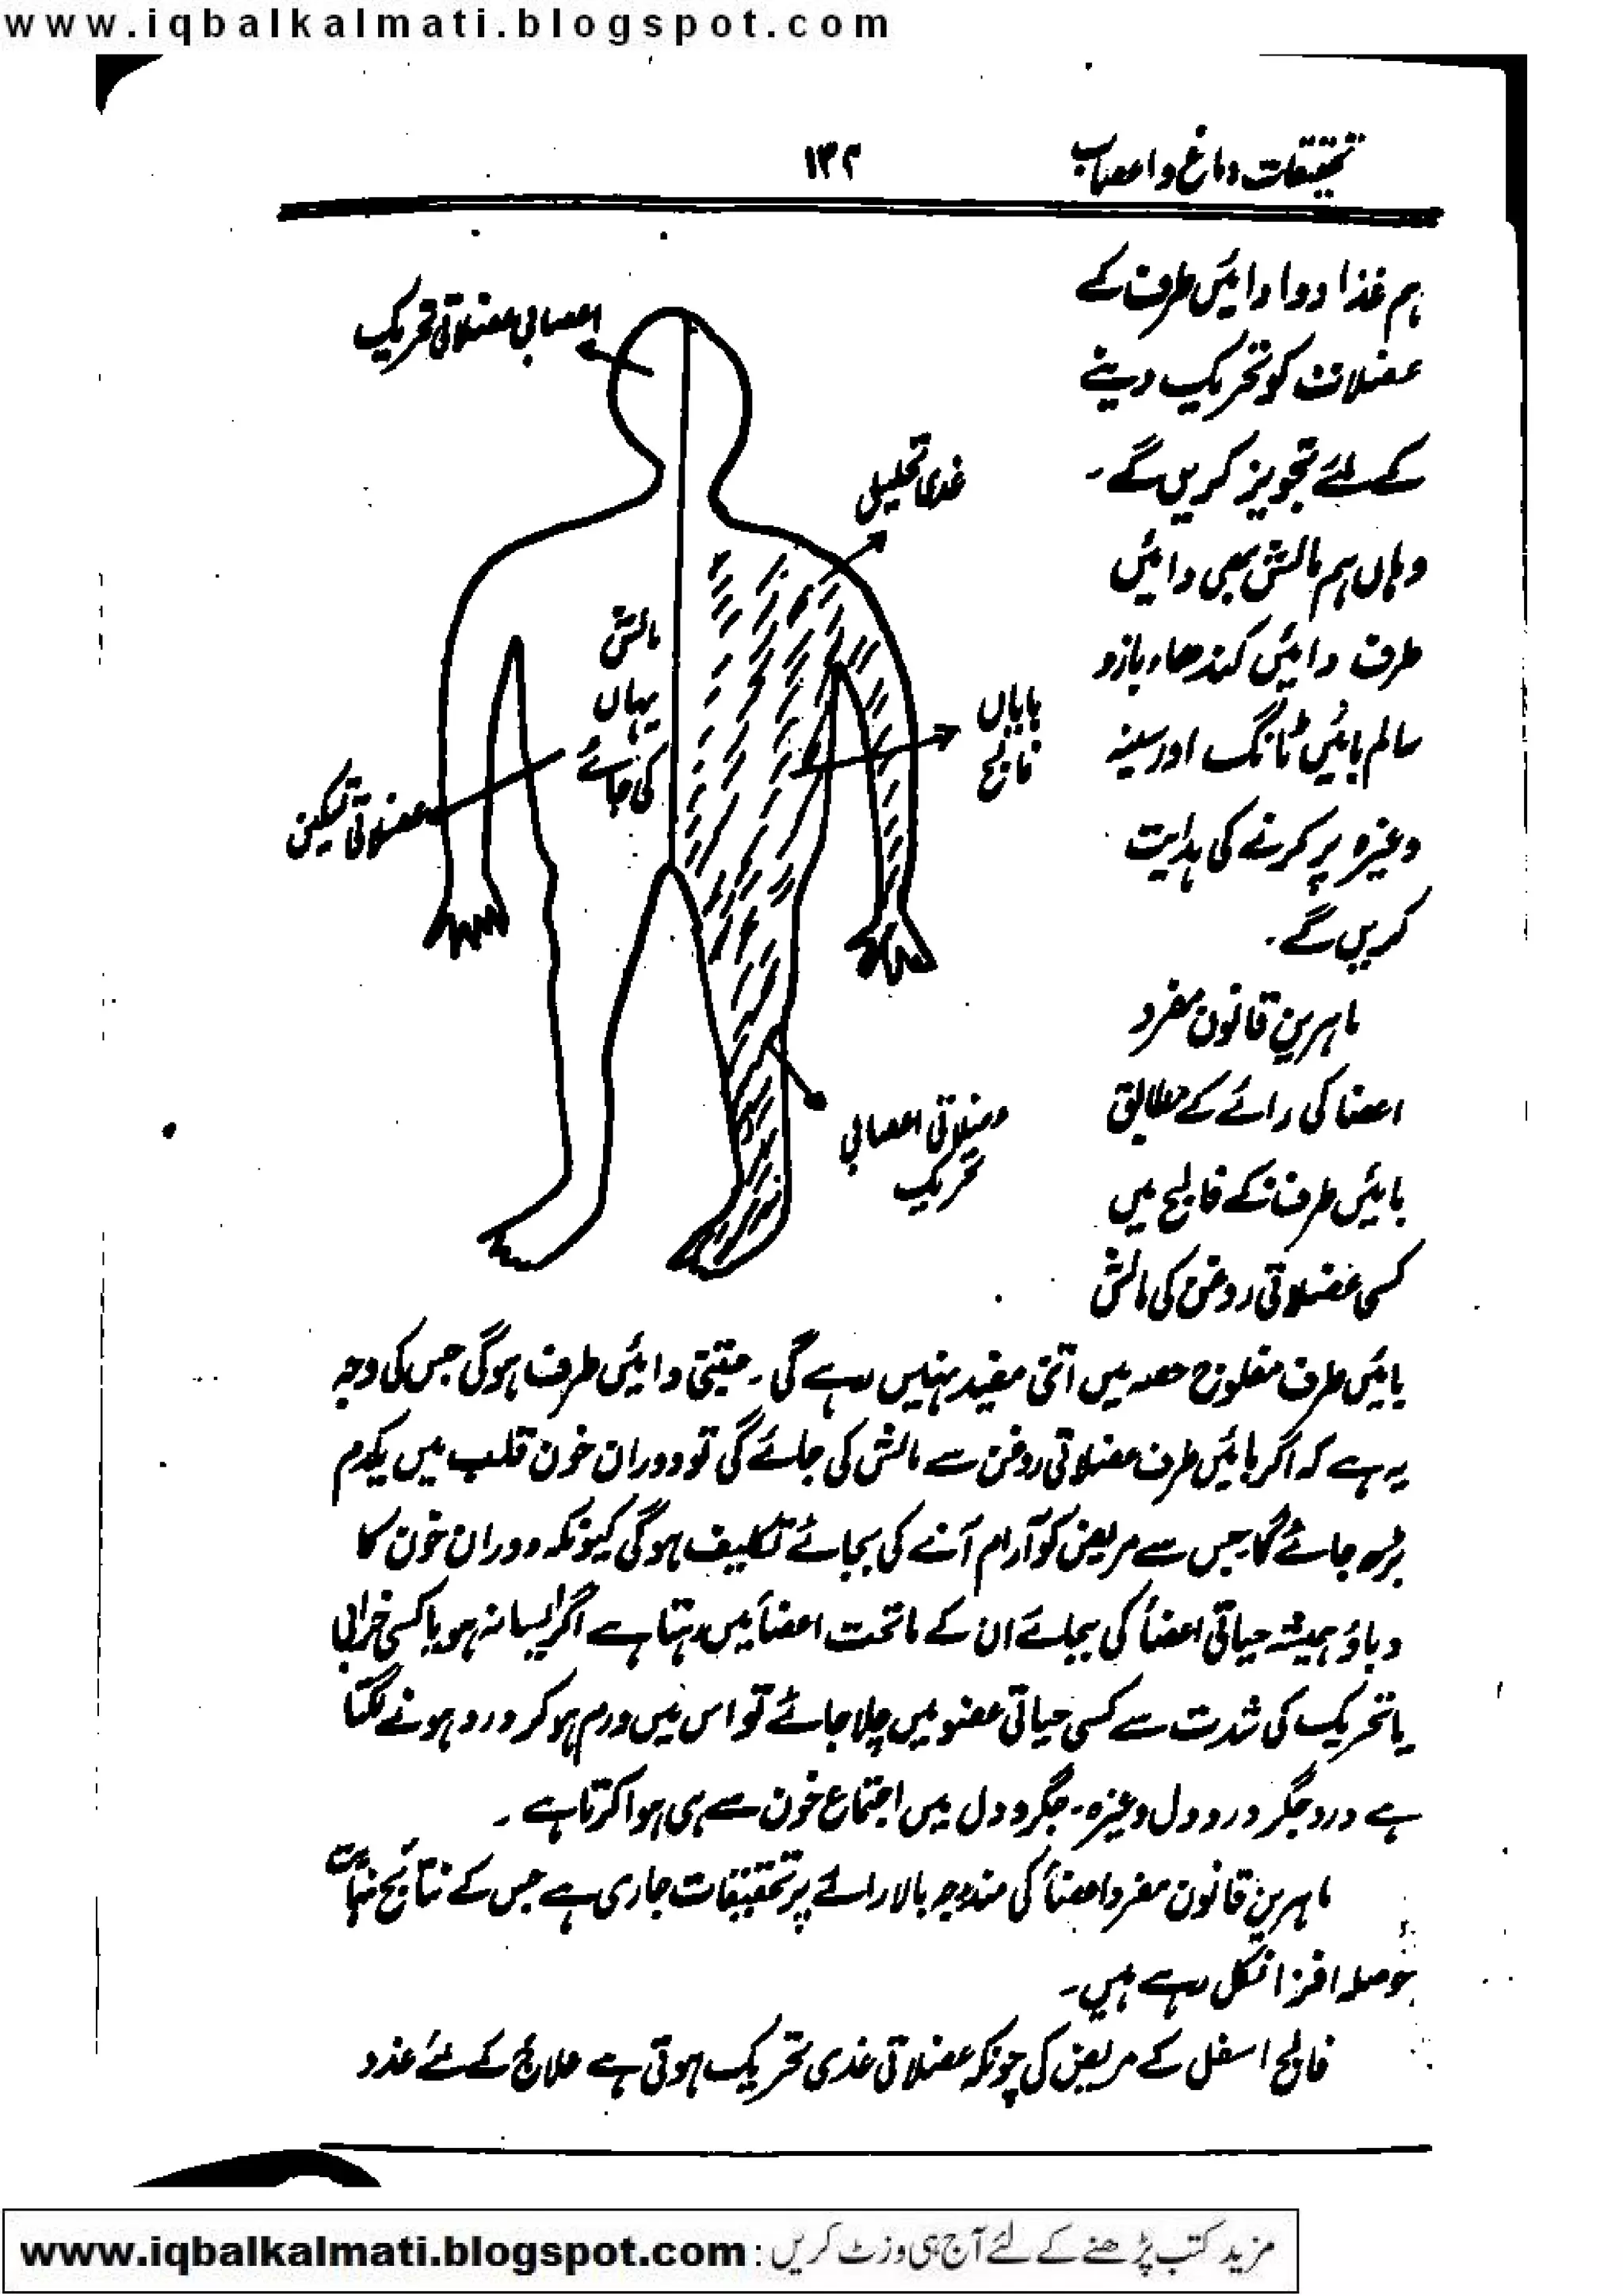 www.iqbalkalmati.blogspot.com
تحقیقات دماغ و اعصاب
۱۳۲
ہم غذا دوا دائیں طرف کے
عضلات کو تحریک دینے
کے لئے تجویز کریں گے۔
وہاں ہم مالش بھی دائیں
طرف دائیں کندھا، بازو
سالم بائیں ٹانگ اور سینہ
وغیرہ پر کرنے کی ہدایت
کریں گے۔
ماہرین قانون مفرد
اعضا کی رائے کے مطابق
بائیں طرف کے فالج میں
کسی عضلاتی روغن کی مالش
اعصابی عضلاتی تحریک
غدی تحلیل
مالش
یہاں
کی جائے
بایاں
فالج
عضلاتی تسکین
عضلاتی اعصابی
تحریک
بائیں طرف مفلوج حصہ میں اتنی مفید نہیں رہے گی۔ جتنی دائیں طرف ہوگی جس کی وجہ
یہ ہے کہ اگر بائیں طرف عضلاتی روغن سے مالش کی جائے گی تو دوران خون قلب میں یکدم
بڑھ جائے گا۔ جس سے مریض کو آرام آنے کی بجائے تکلیف ہوگی کیونکہ دوران خون کا
دباؤ ہمیشہ حیاتی اعضأ کی بجائے ان کے ماتحت اعضأ میں رہتا ہے اگر ایسا نہ ہو یا کسی خرابی
یا تحریک کی شدت سے کسی حیاتی عضو میں چلا جائے تو اس میں ورم ہو کر درد ہونے لگتا
ہے درد جگر درد دل وغیرہ۔ جگر و دل میں اجتماع خون سے ہی ہوا کرتا ہے۔
ماہرین قانون مفرد اعضأ کی مندرجہ بالا رائے پر تحقیقات جاری ہے جس کے نتائج نہایت
حوصلہ افزا نکل رہے ہیں۔
فالج اسفل کے مریض کی چونکہ عضلاتی غدی تحریک ہوتی ہے علاج کے لئے غدد
مزید کتب پڑھنے کے لئے آج ہی وزٹ کریں : www.iqbalkalmati.blogspot.com